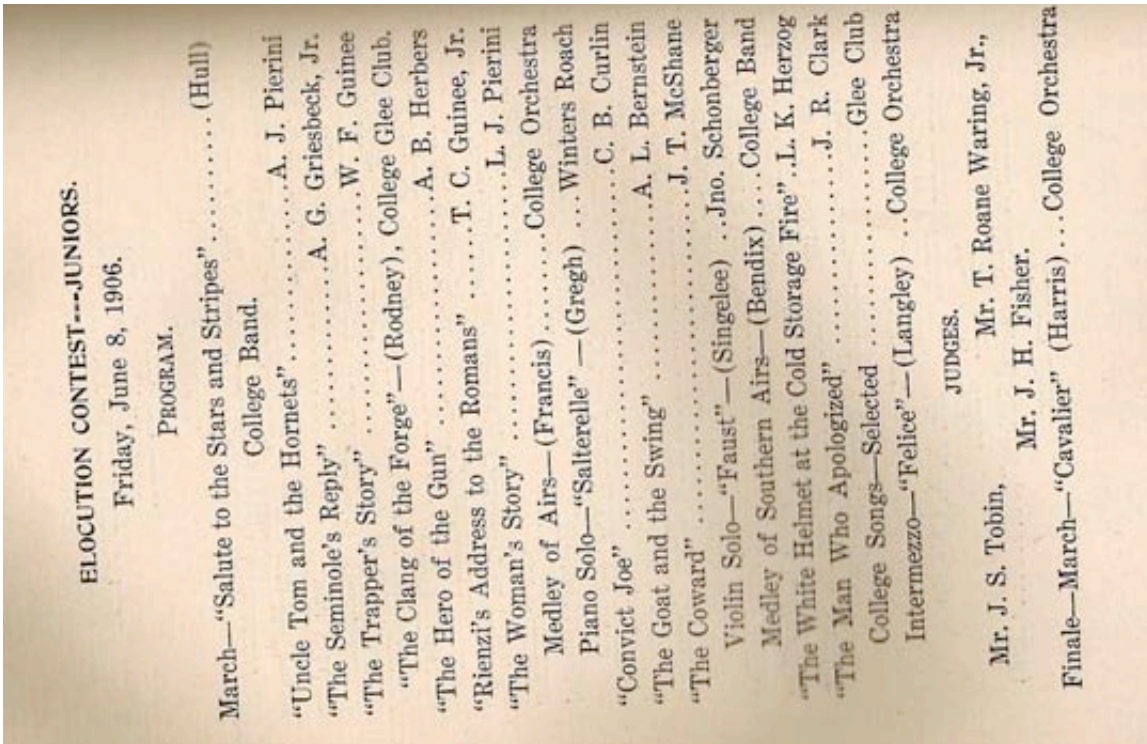 ELOCUTION CONTEST---JUNIORS.
Friday, June 8, 1906.
PROGRAM.
March—“Salute to the Stars and Stripes”..........(Hull)
College Band.
“Uncle Tom and the Hornets”..............A. J. Pierini
“The Seminole's Reply” ..........A. G. Griesbeck, Jr.
“The Trapper's Story” ................W. F. Guinee
“The Clang of the Forge”—(Rodney), College Glee Club.
“The Hero of the Gun” ..................A. B. Herbers
“Rienzi's Address to the Romans” ......T. C. Guinee, Jr.
“The Woman's Story”....................L. J. Pierini
Medley of Airs—(Francis).......College Orchestra
Piano Solo—“Salterelle” —(Gregh) ...Winters Roach
“Convict Joe” ........................C. B. Curlin
“The Goat and the Swing” ............A. L. Bernstein
“The Coward” ......................J. T. McShane
Violin Solo—“Faust”—(Singelee) ..Jno. Schonberger
Medley of Southern Airs—(Bendix) ....College Band
“The White Helmet at the Cold Storage Fire”..L. K. Herzog
“The Man Who Apologized” ..............J. R. Clark
College Songs—Selected ................Glee Club
Intermezzo—“Felice”—(Langley) ..College Orchestra
JUDGES.
Mr. J. S. Tobin,
Mr. T. Roane Waring, Jr.,
Mr. J. H. Fisher.
Finale—March—“Cavalier” (Harris)...College Orchestra